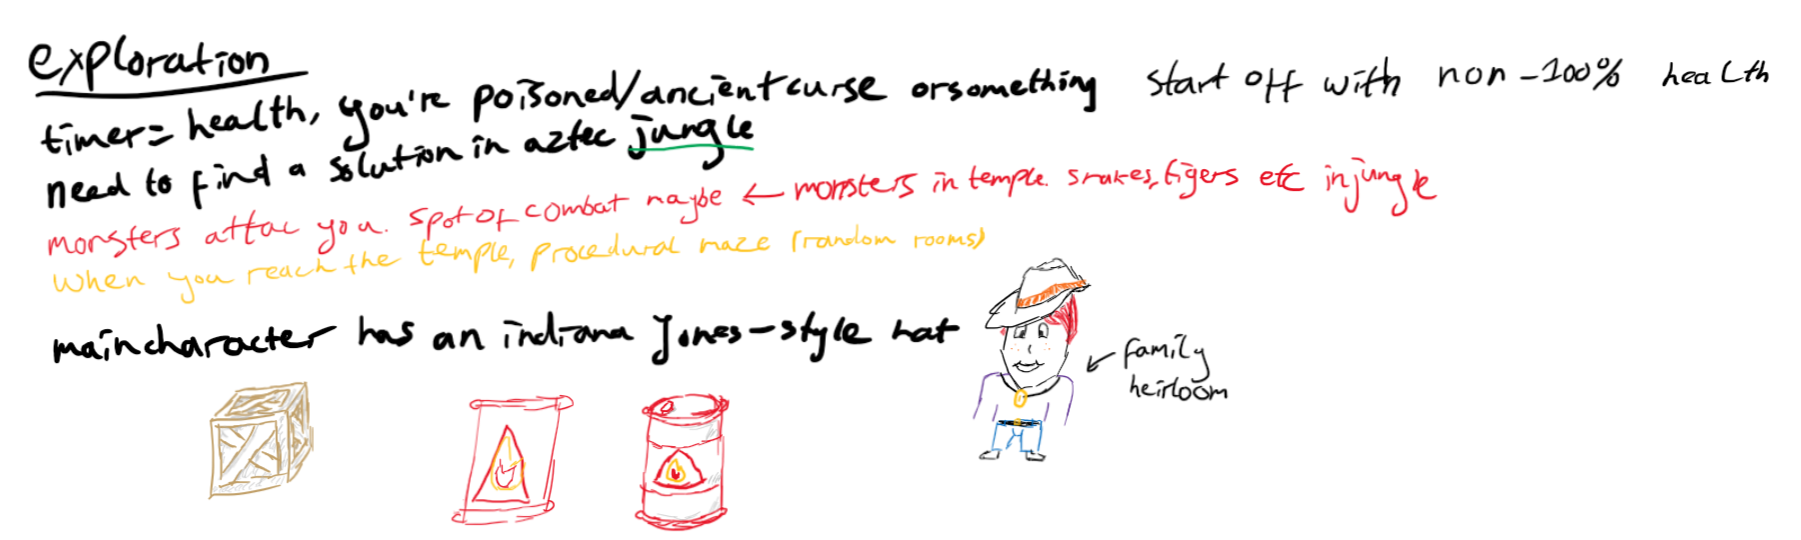 exploration
timer= health, you're poisoned/ancient curse or something start off with non-100% health
need to find a solution in aztec jungle
monsters attac you. spot of combat maybe ← monsters in temple. snakes, tigers etc in jungle
when you reach the temple, procedural maze (random rooms)
main character has an indiana jones-style hat
← family
heirloom